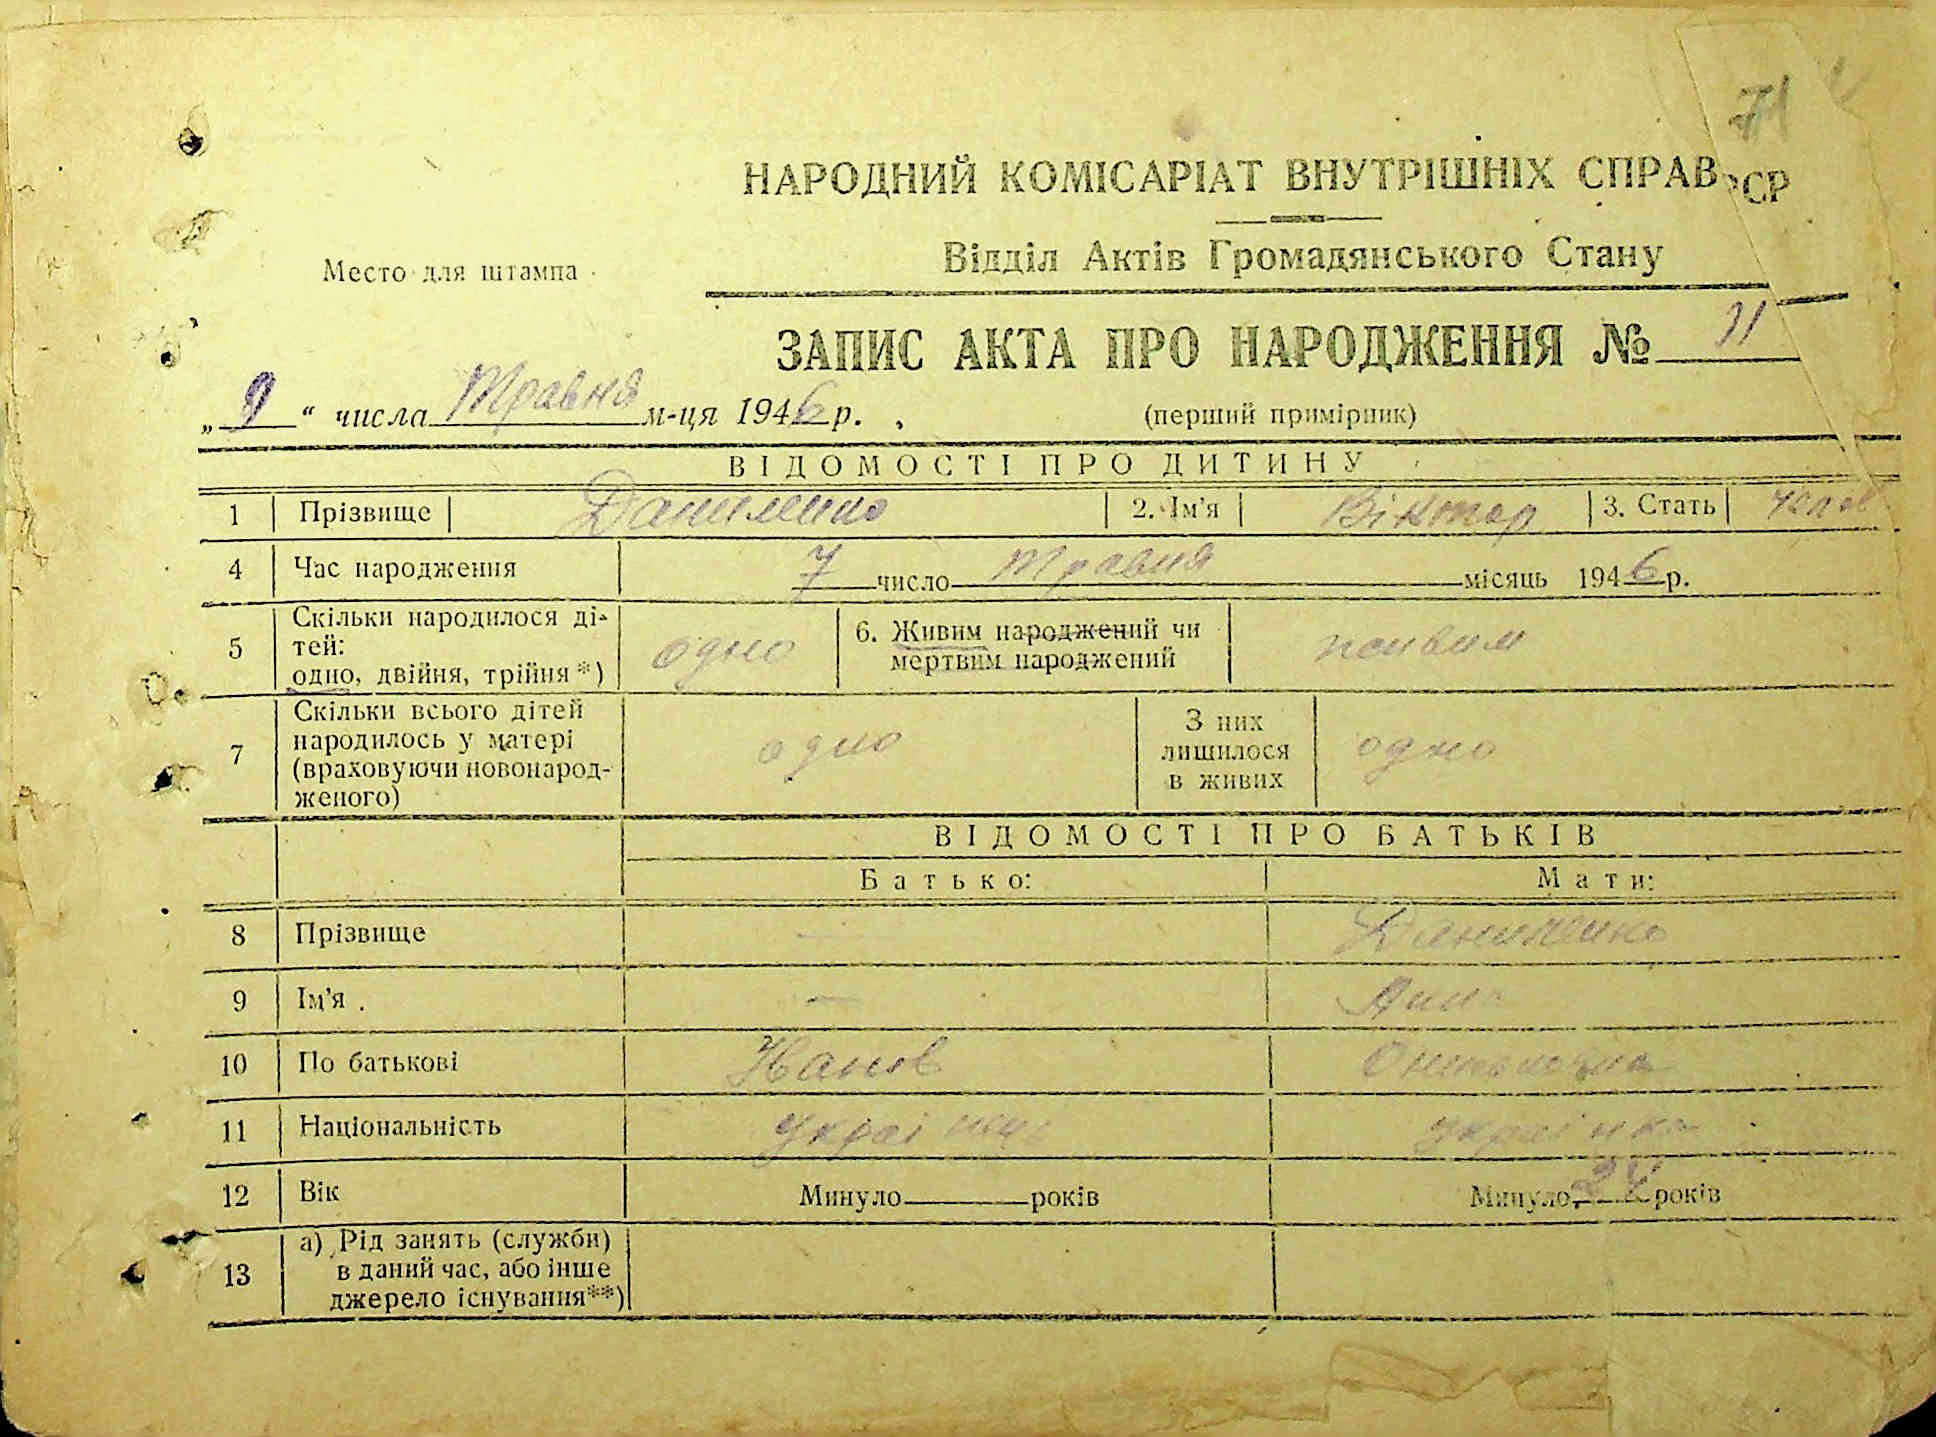 71
НАРОДНИЙ КОМІСАРІАТ ВНУТРІШНІХ СПРАВ РСР
Відділ Актів Громадянського Стану
Место для штампа
ЗАПИС АКТА ПРО НАРОДЖЕННЯ № 11
„ 9 “ числа Травня м-ця 1946 р.
(перший примірник)
ВІДОМОСТІ ПРО ДИТИНУ
1 Прізвище Даниленко 2. Ім'я Віктор 3. Стать чолов
4 Час народження 7 число Травня місяць 1946 р.
5 Скільки народилося ді-
тей:
одно, двійня, трійня *) одно 6. Живим народжений чи
мертвим народжений живим
7 Скільки всього дітей
народилось у матері
(враховуючи новонарод-
женого) одно З них
лишилося
в живих одно
ВІДОМОСТІ ПРО БАТЬКІВ
Батько: Мати:
8 Прізвище — Даниленко
9 Ім'я — Анна
10 По батькові Іванов
11 Національність Українец Українка
12 Вік Минуло років Минуло 24 років
13 а) Рід занять (служби)
в даний час, або інше
джерело існування**)